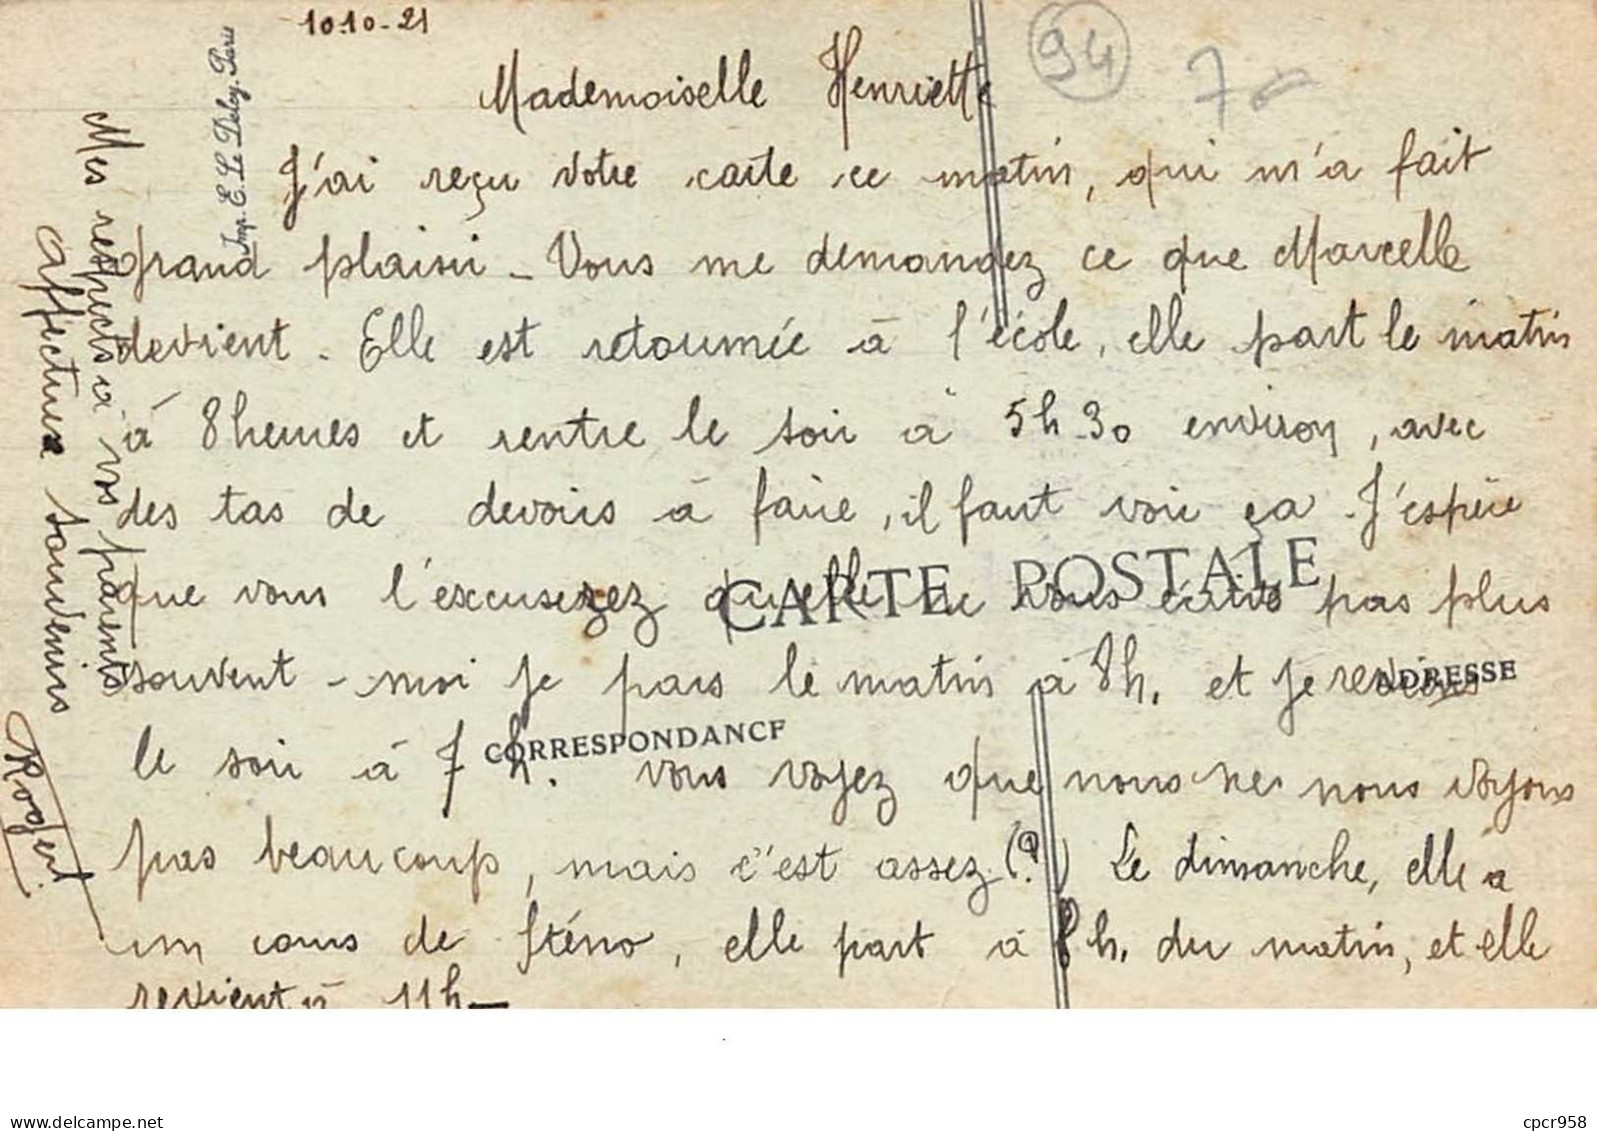 10.10-21
94
7
Mademoiselle Henriette
J'ai reçu votre carte ce matin, qui m'a fait
grand plaisir - Vous me demandez ce que Marcelle
devient - Elle est retournée à l'école, elle part le matin
à 8 heures et rentre le soir à 5h-30 environ, avec
des tas de devoirs à faire, il faut voir ça - J'espère
que vous l'excuserez qu'elle ne vous écrive pas plus
souvent - moi je pars le matin à 8h. et je reviens
le soir à 7h. vous voyez que nous ne nous voyons
pas beaucoup, mais c'est assez (?) Le dimanche, elle a
un cours de sténo, elle part à 8h. du matin, et elle
revient à 11h-
Mes respects à vos parents
Affectueux souvenirs
Roger
Imp. E. Le Deley. Paris
CARTE POSTALE
CORRESPONDANCE
ADRESSE
www.delcampe.net
cpcr958